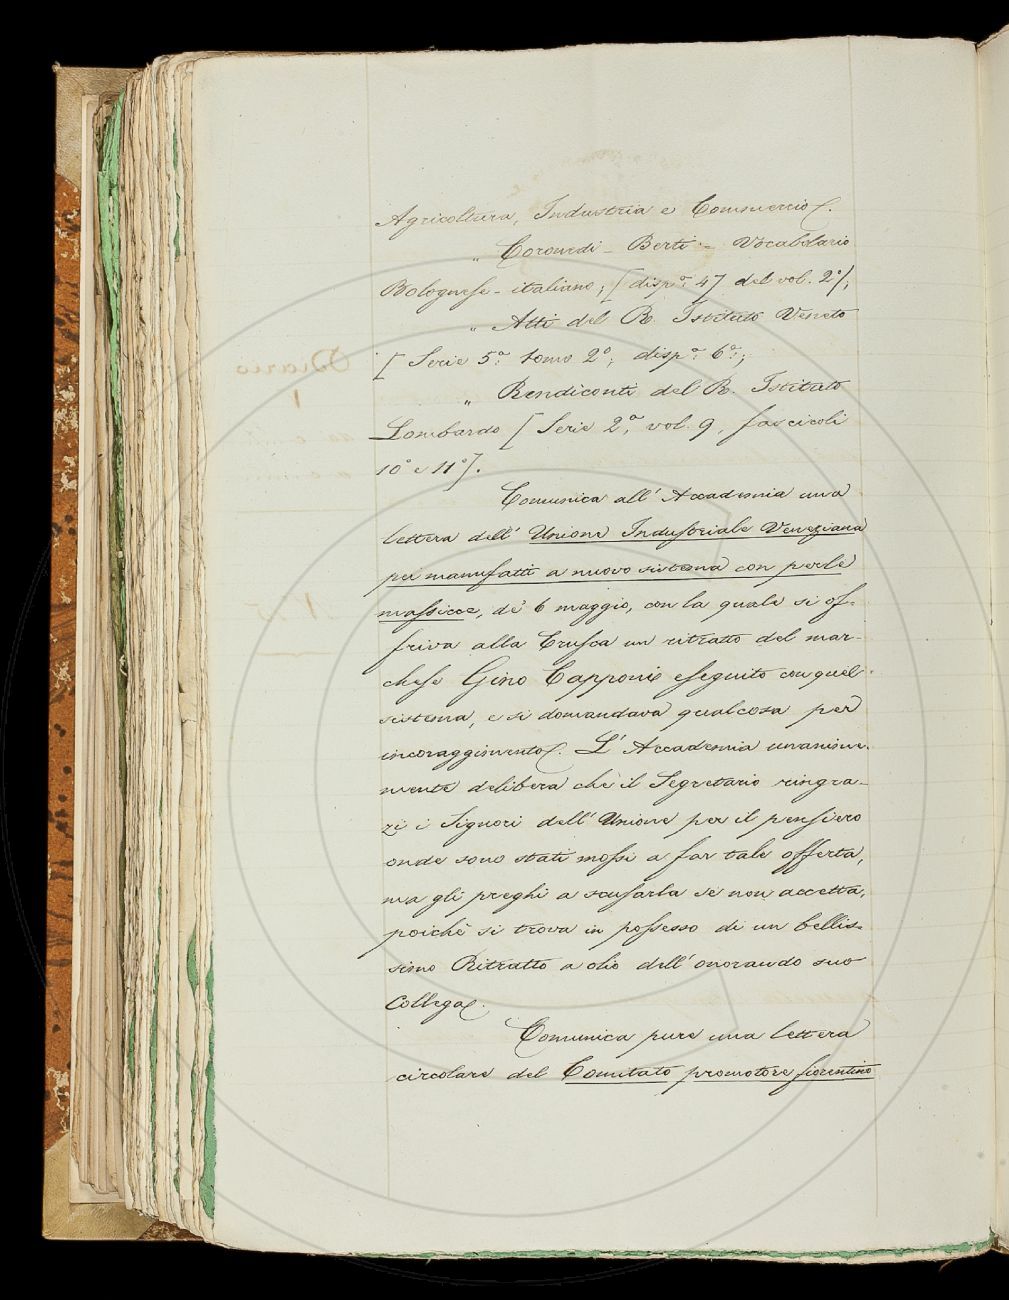 Agricoltura, Industria e Commercio.
„ Coronedi - Berti - Vocabolario
Bolognese - italiano; [disp.ᵃ 47 del vol. 2°];
„ Atti del R. Istituto Veneto
[Serie 5.ᵃ tomo 2°; disp.ᵃ 6.ᵃ];
„ Rendiconti del R. Istituto
Lombardo [Serie 2.ᵃ, vol. 9, fascicoli
10° e 11°].
Comunica all' Accademia una
lettera dell' Unione Industriale Veneziana
pei manufatti a nuovo sistema con perle
massicce, de' 6 maggio, con la quale si of-
friva alla Crusca un ritratto del mar-
chese Gino Capponi eseguito con quel
sistema, e si domandava qualcosa per
incoraggimento. L' Accademia unanime-
mente delibera che il Segretario ringra-
zi i Signori dell' Unione per il pensiero
onde sono stati mossi a far tale offerta,
ma gli preghi a scusarla se non accetta,
poichè si trova in possesso di un bellis-
simo Ritratto a olio dell' onorando suo
Collega.
Comunica pure una lettera
circolare del Comitato promotore fiorentino